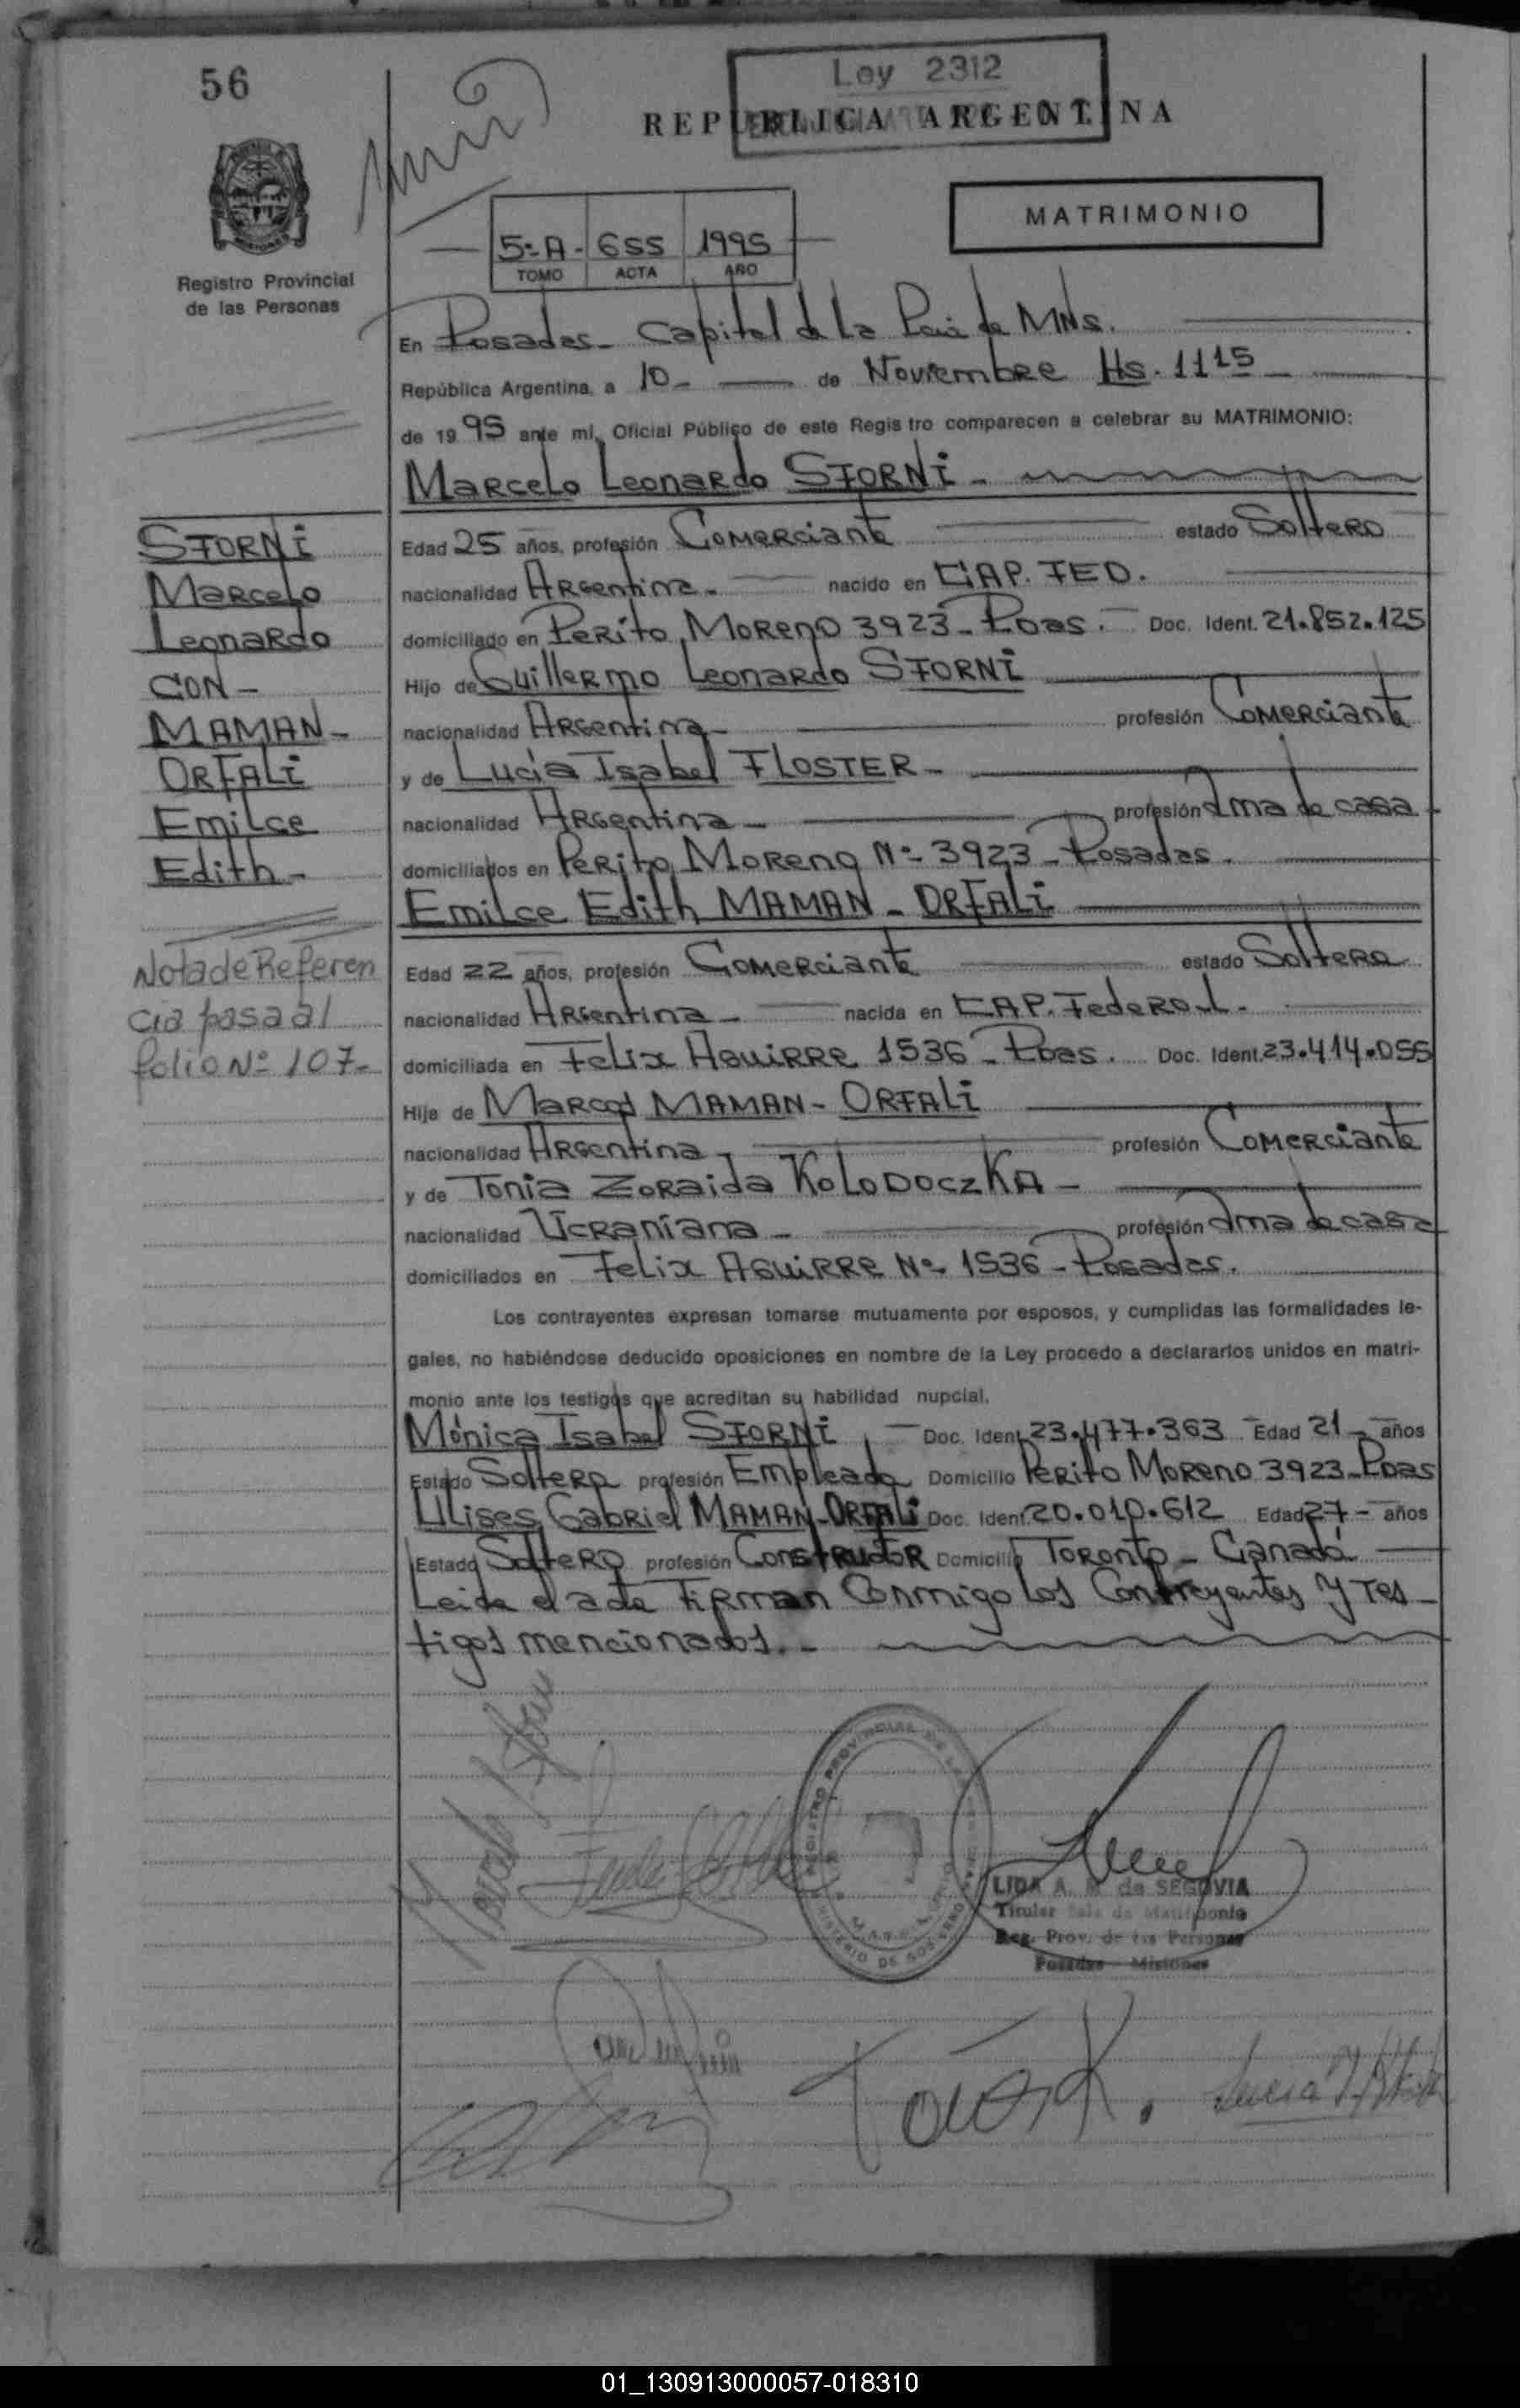 56
Ley 2312
REPUBLICA ARGENTINA
MATRIMONIO
5º A - 655 1995
TOMO ACTA AÑO
Registro Provincial
de las Personas
En Posadas - Capital de la Pcia de MNs.
República Argentina, a 10 - de Noviembre Hs. 1115
de 19 95 ante mí, Oficial Público de este Regis tro comparecen a celebrar su MATRIMONIO:
Marcelo Leonardo STORNI -
Edad 25 años, profesión Comerciante estado Soltero
nacionalidad Argentina - nacido en CAP. FED.
domiciliado en Perito Moreno 3923 - Pdas. Doc. Ident. 21.852.125
Hijo de Guillermo Leonardo STORNI
nacionalidad Argentina - profesión Comerciante
y de Lucía Isabel FLOSTER -
nacionalidad Argentina - profesión Ama de casa
domiciliados en Perito Moreno Nº 3923 - Posadas.
Emilce Edith MAMAN - ORFALI
Edad 22 años, profesión Comerciante estado Soltera
nacionalidad Argentina - nacida en CAP. Federal.
domiciliada en Felix Aguirre 1536 - Pdas. Doc. Ident. 23.414.055
Hija de Marcos MAMAN - ORFALI
nacionalidad Argentina - profesión Comerciante
y de Tonia Zoraida KOLODOCZKA -
nacionalidad Ucraniana - profesión Ama de casa
domiciliados en Felix Aguirre Nº 1536 - Posadas.
Los contrayentes expresan tomarse mutuamente por esposos, y cumplidas las formalidades le-
gales, no habiéndose deducido oposiciones en nombre de la Ley procedo a declararlos unidos en matri-
monio ante los testigos que acreditan su habilidad nupcial.
Mónica Isabel STORNI Doc. Ident. 23.477.363 Edad 21 - años
Estado Soltera profesión Empleada Domicilio Perito Moreno 3923 - Pdas
Ulises Gabriel MAMAN - ORFALI Doc. Ident. 20.010.612 Edad 27 - años
Estado Soltero profesión Constructor Domicilio Toronto - Canadá
Leida el acta Firman Conmigo los Contrayentes y Tes-
tigos mencionados. -
STORNI
Marcelo
Leonardo
CON -
MAMAN -
ORFALI
Emilce
Edith -
Nota de Referen
cia pasa al
folio Nº 107 -
REGISTRO PROVINCIAL DE LAS
MINISTERIO DE GOBIERNO
LIDA A. de SEGOVIA
Titular Sala de Matrimonio
Reg. Prov. de las Personas
Posadas - Misiones
01_130913000057-018310